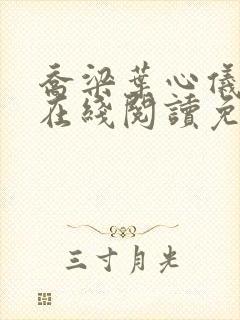 乔梁葉心儀
在綫閱讀免
三寸月光